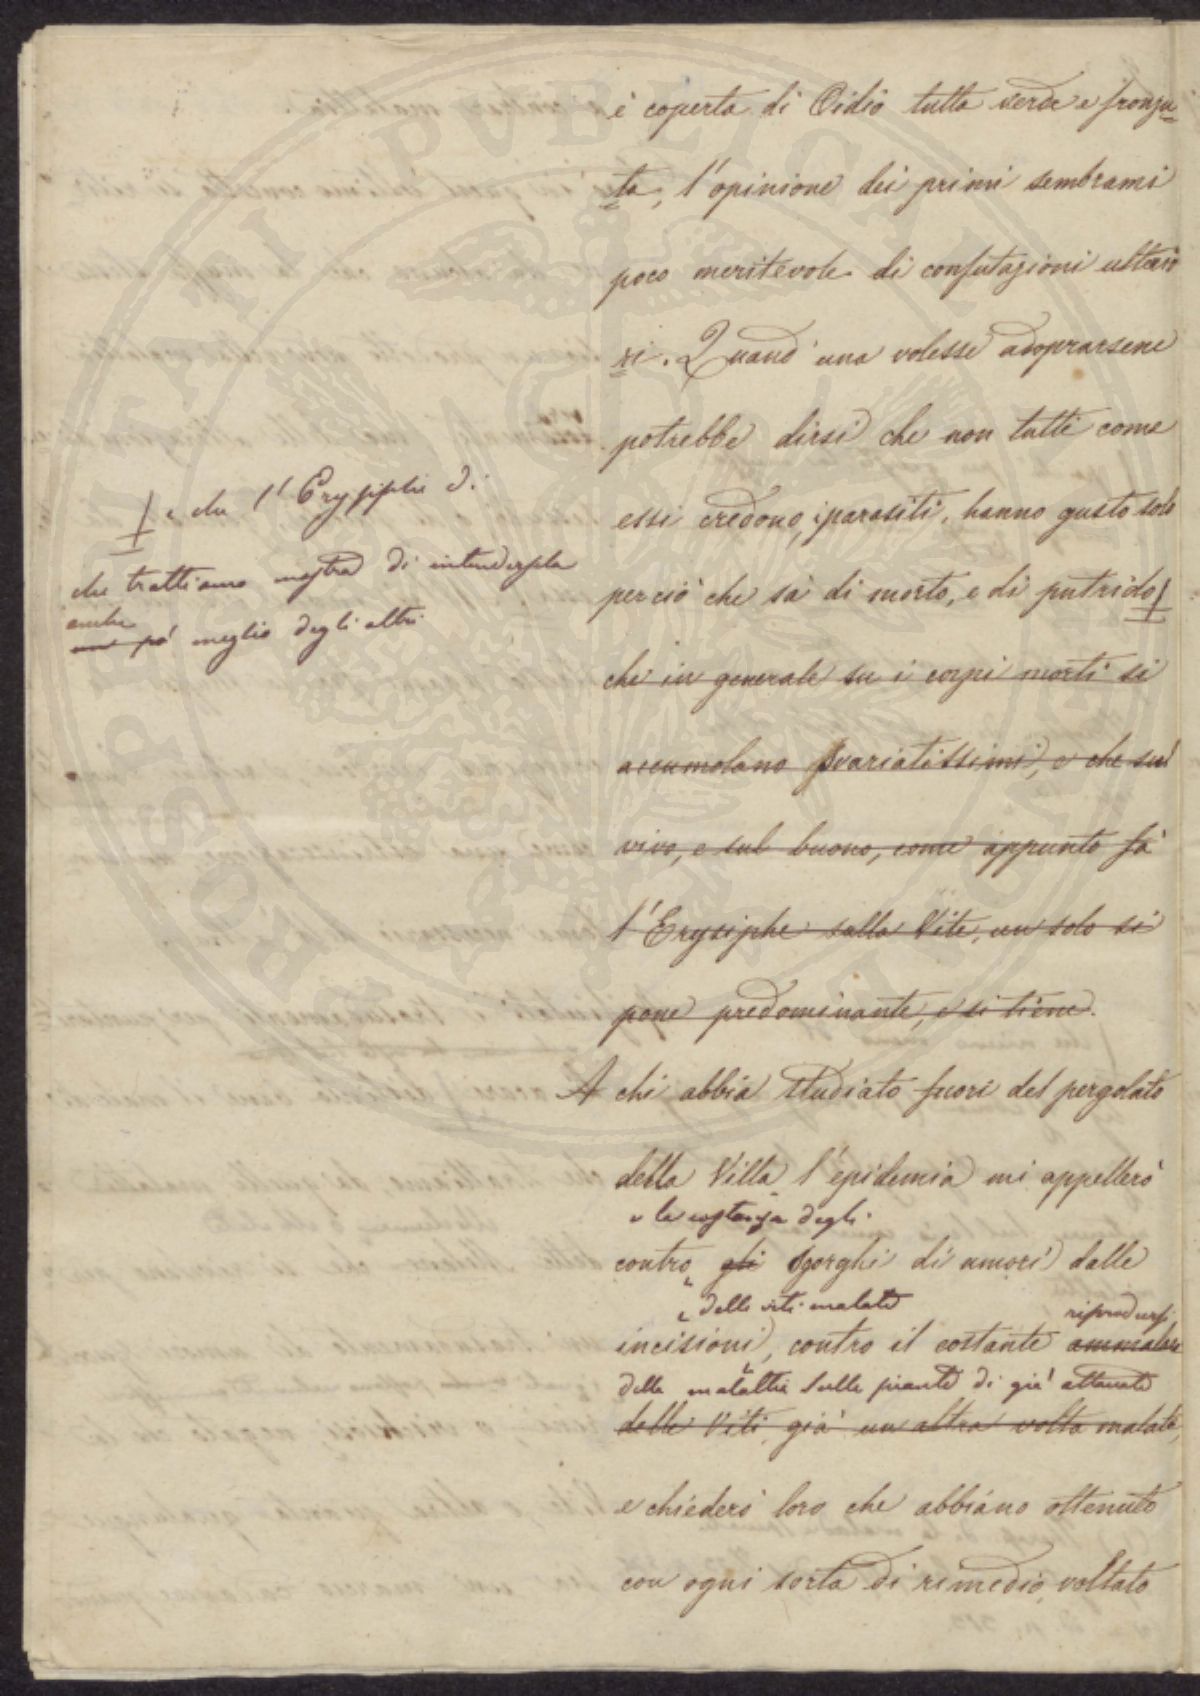 è coperta di Oidio tutta verde e fronzu
ta, l'opinione dei primi sembrami
poco meritevole di confutazioni ulterio
ri. Quand' una volesse adoprarsene
potrebbe dirsi che non tutti come
essi credono, i parasiti, hanno gusto solo
perciò che sà di morto, e di putrido
e che l'Erysiphe di
che trattiamo mostra di intendersela
anche
un pò meglio degli altri
che in generale su i corpi morti si
accumolano svariatissimi, e che sul
vivo, e sul buono, come appunto fà
l'Erysiphe sulla Vite, un solo si
pone predominante, e si tiene.
A chi abbia studiato fuori del pergolato
della Villa l'epidemia mi appellerò
e la costanza degli
contro gli sgorghi di umori dalle
delle viti malate riprodursi
incisioni, contro il costante ammalare
della malattia sulle piante di già attaccate
delle Viti già un altra volta malate,
e chiederò loro che abbiano ottenuto
con ogni sorta di rimedio, voltato
PVBLICAE
HOSPITATI